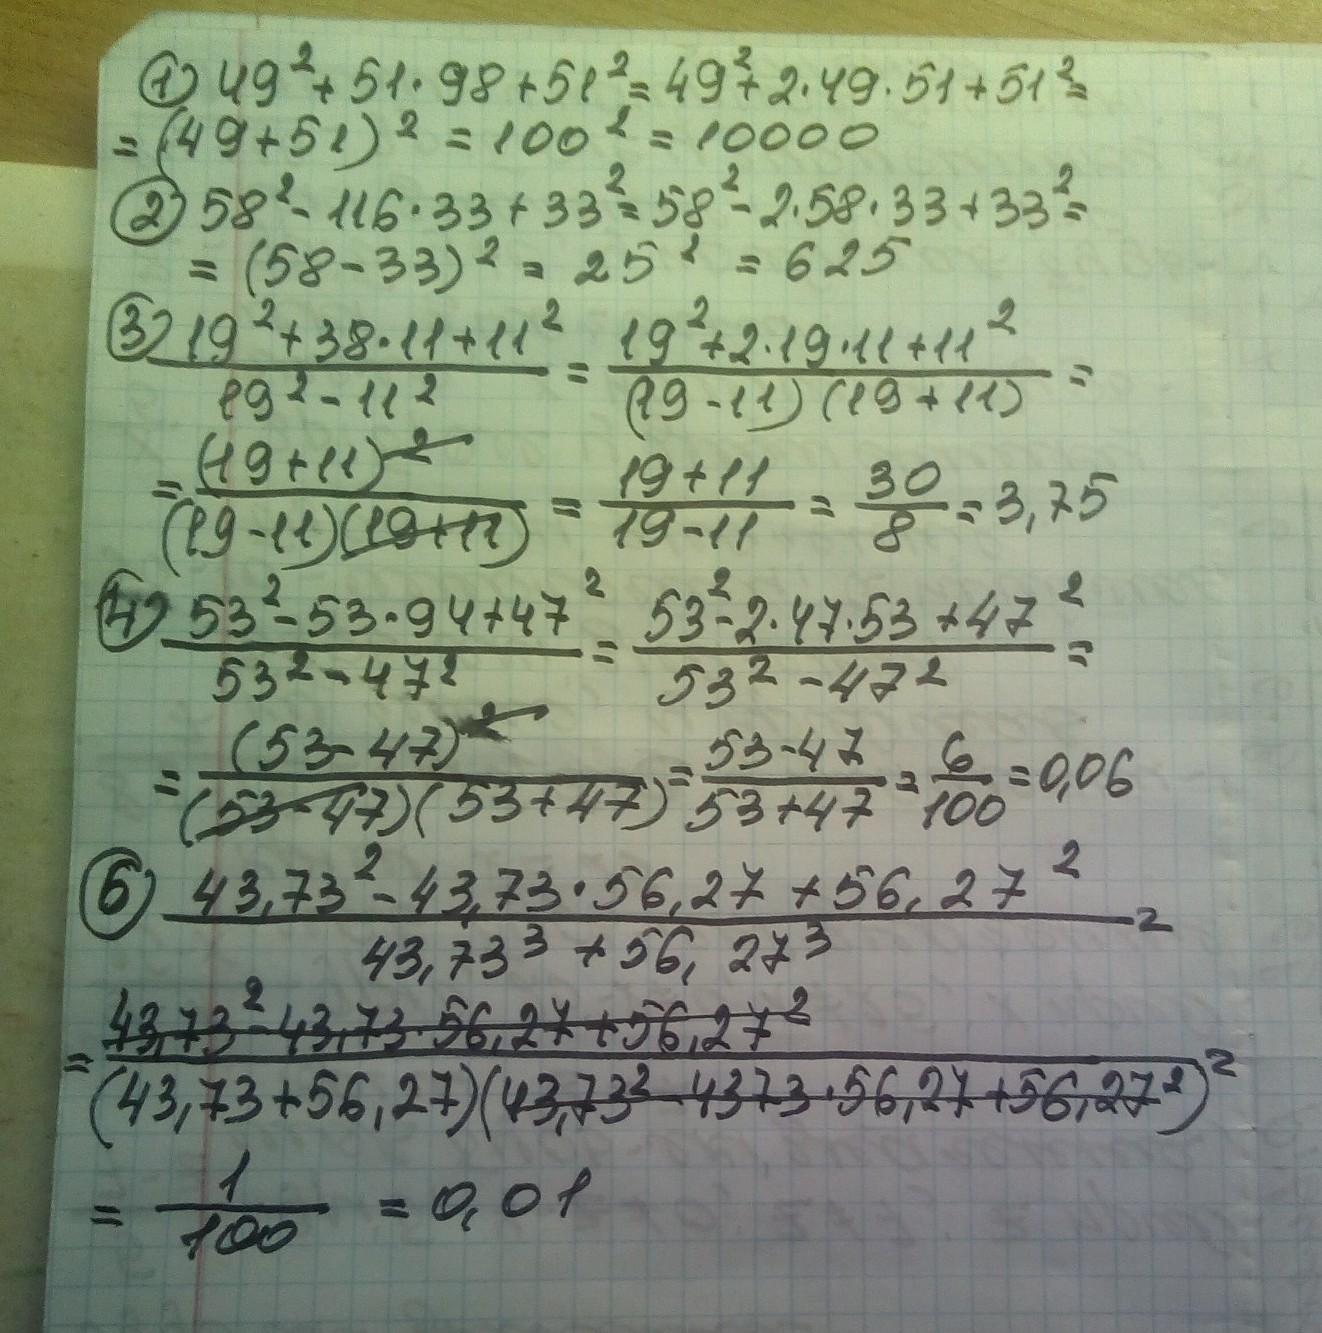 ① 49² + 51 · 98 + 51² = 49² + 2 · 49 · 51 + 51² =
= (49 + 51)² = 100² = 10000
② 58² - 116 · 33 + 33² = 58² - 2 · 58 · 33 + 33² =
= (58 - 33)² = 25² = 625
③ (19² + 38 · 11 + 11²) / (19² - 11²) = (19² + 2 · 19 · 11 + 11²) / ((19 - 11)(19 + 11)) =
= (19 + 11)² / ((19 - 11)(19 + 11)) = (19 + 11) / (19 - 11) = 30/8 = 3,75
④ (53² - 53 · 94 + 47²) / (53² - 47²) = (53² - 2 · 47 · 53 + 47²) / (53² - 47²) =
= (53 - 47)² / ((53 - 47)(53 + 47)) = (53 - 47) / (53 + 47) = 6/100 = 0,06
⑤ (43,73² - 43,73 · 56,27 + 56,27²) / (43,73³ + 56,27³) =
= (43,73² - 43,73 · 56,27 + 56,27²) / ((43,73 + 56,27)(43,73² - 4373 · 56,27 + 56,27²)) =
= 1/100 = 0,01